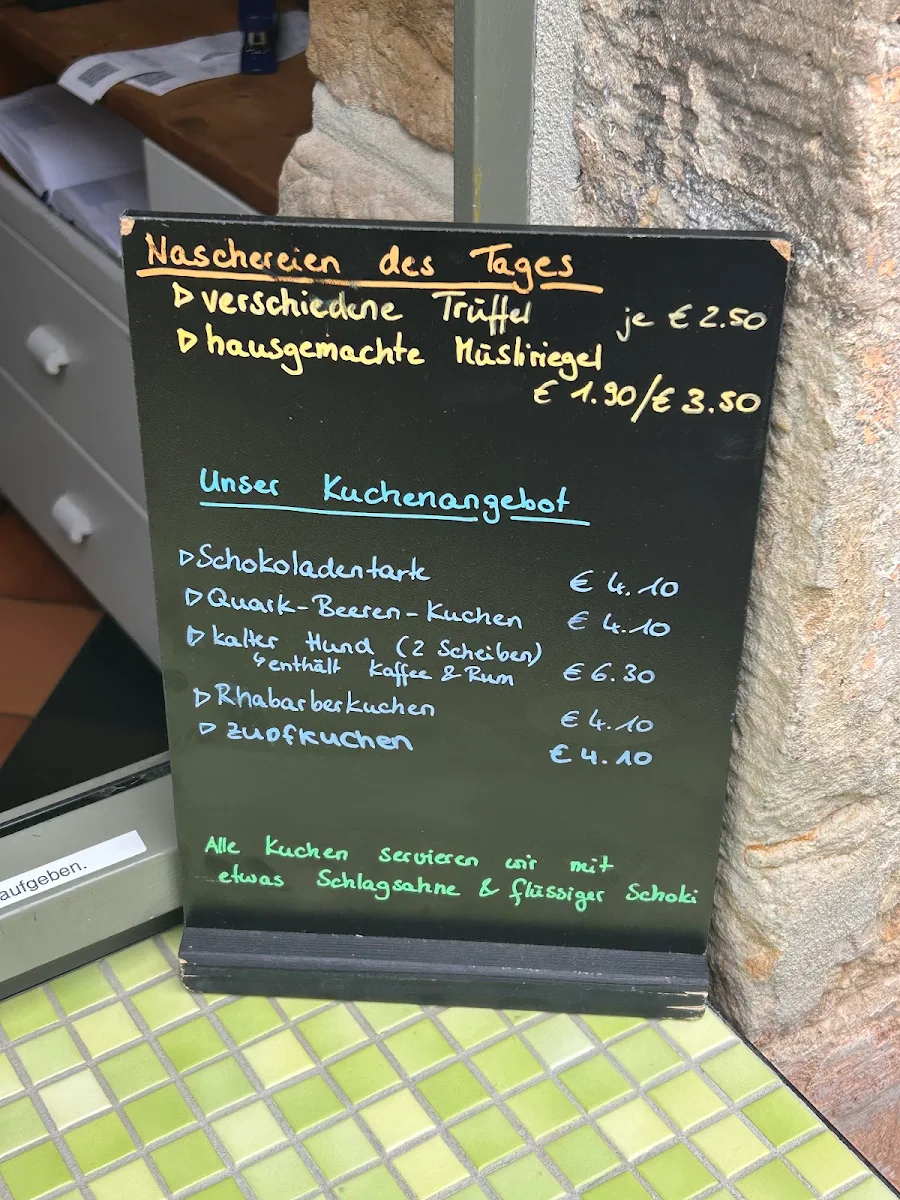 Naschereien des Tages
▷ verschiedene Trüffel je € 2.50
▷ hausgemachte Müsliriegel
€ 1.90/€ 3.50
Unser Kuchenangebot
▷ Schokoladentarte € 4.10
▷ Quark-Beeren-Kuchen € 4.10
▷ kalter Hund (2 Scheiben)
↳ enthält Kaffee & Rum € 6.30
▷ Rhabarberkuchen € 4.10
▷ Zupfkuchen € 4.10
Alle Kuchen servieren wir mit
etwas Schlagsahne & flüssiger Schoki
aufgeben.